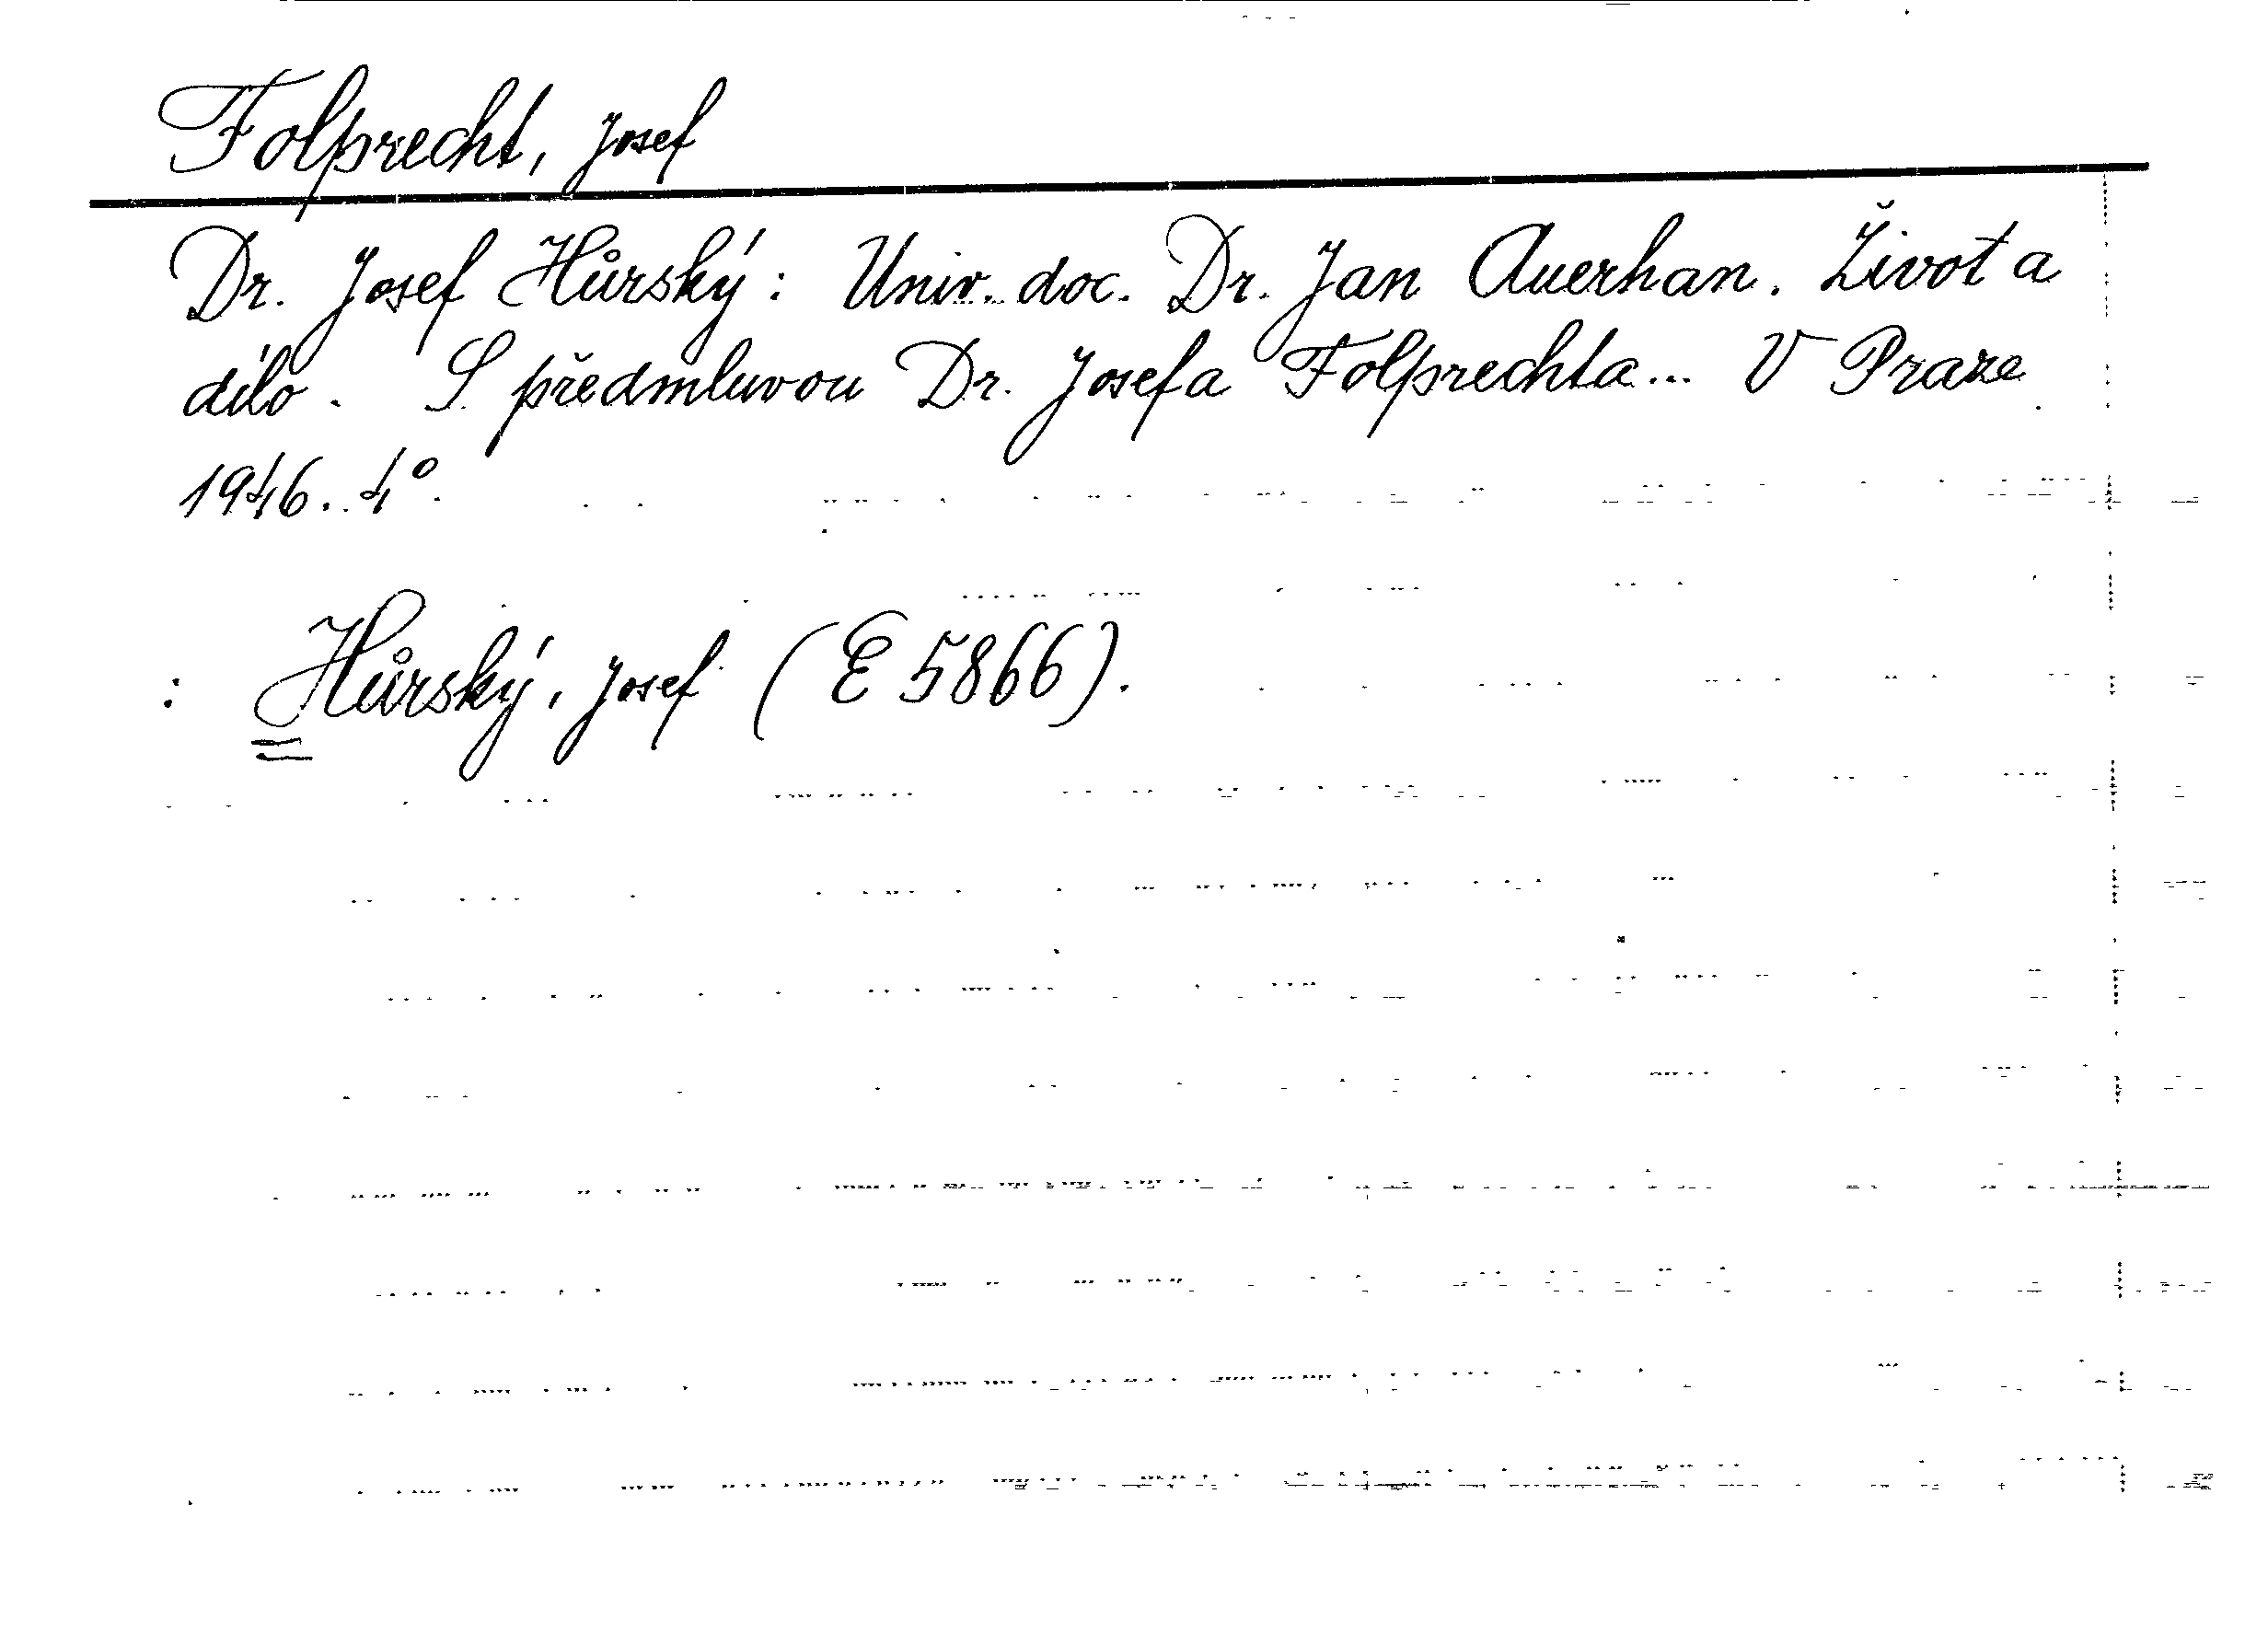 Folprecht, Josef
Dr. Josef Hůrský: Univ. doc. Dr. Jan Auerhan. Život a
dílo. S předmluvou Dr. Josefa Folprechta... V Praze
1946. 4°.
: Hůrský, Josef (E 5866).